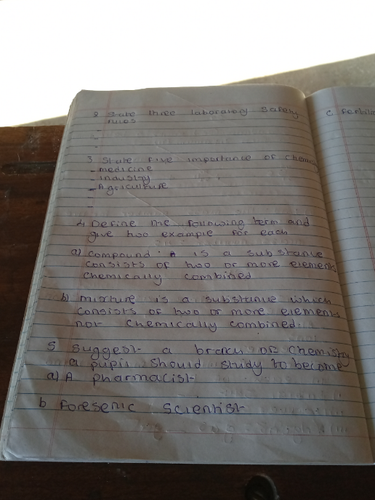 2 State three laboratory safety
rules
3 State five importance of chem
- medicine
- industry
- Agriculture
4 Define the following term and
give two example for each
a) compound A is a substance
consists of two or more elements
chemically combined
b) mixture is a substance which
consists of two or more elements
not chemically combined
5 Suggest a branch of Chemistry
a pupil should study to become
a) A pharmacist
b Foresenic Scientist
C Fertili